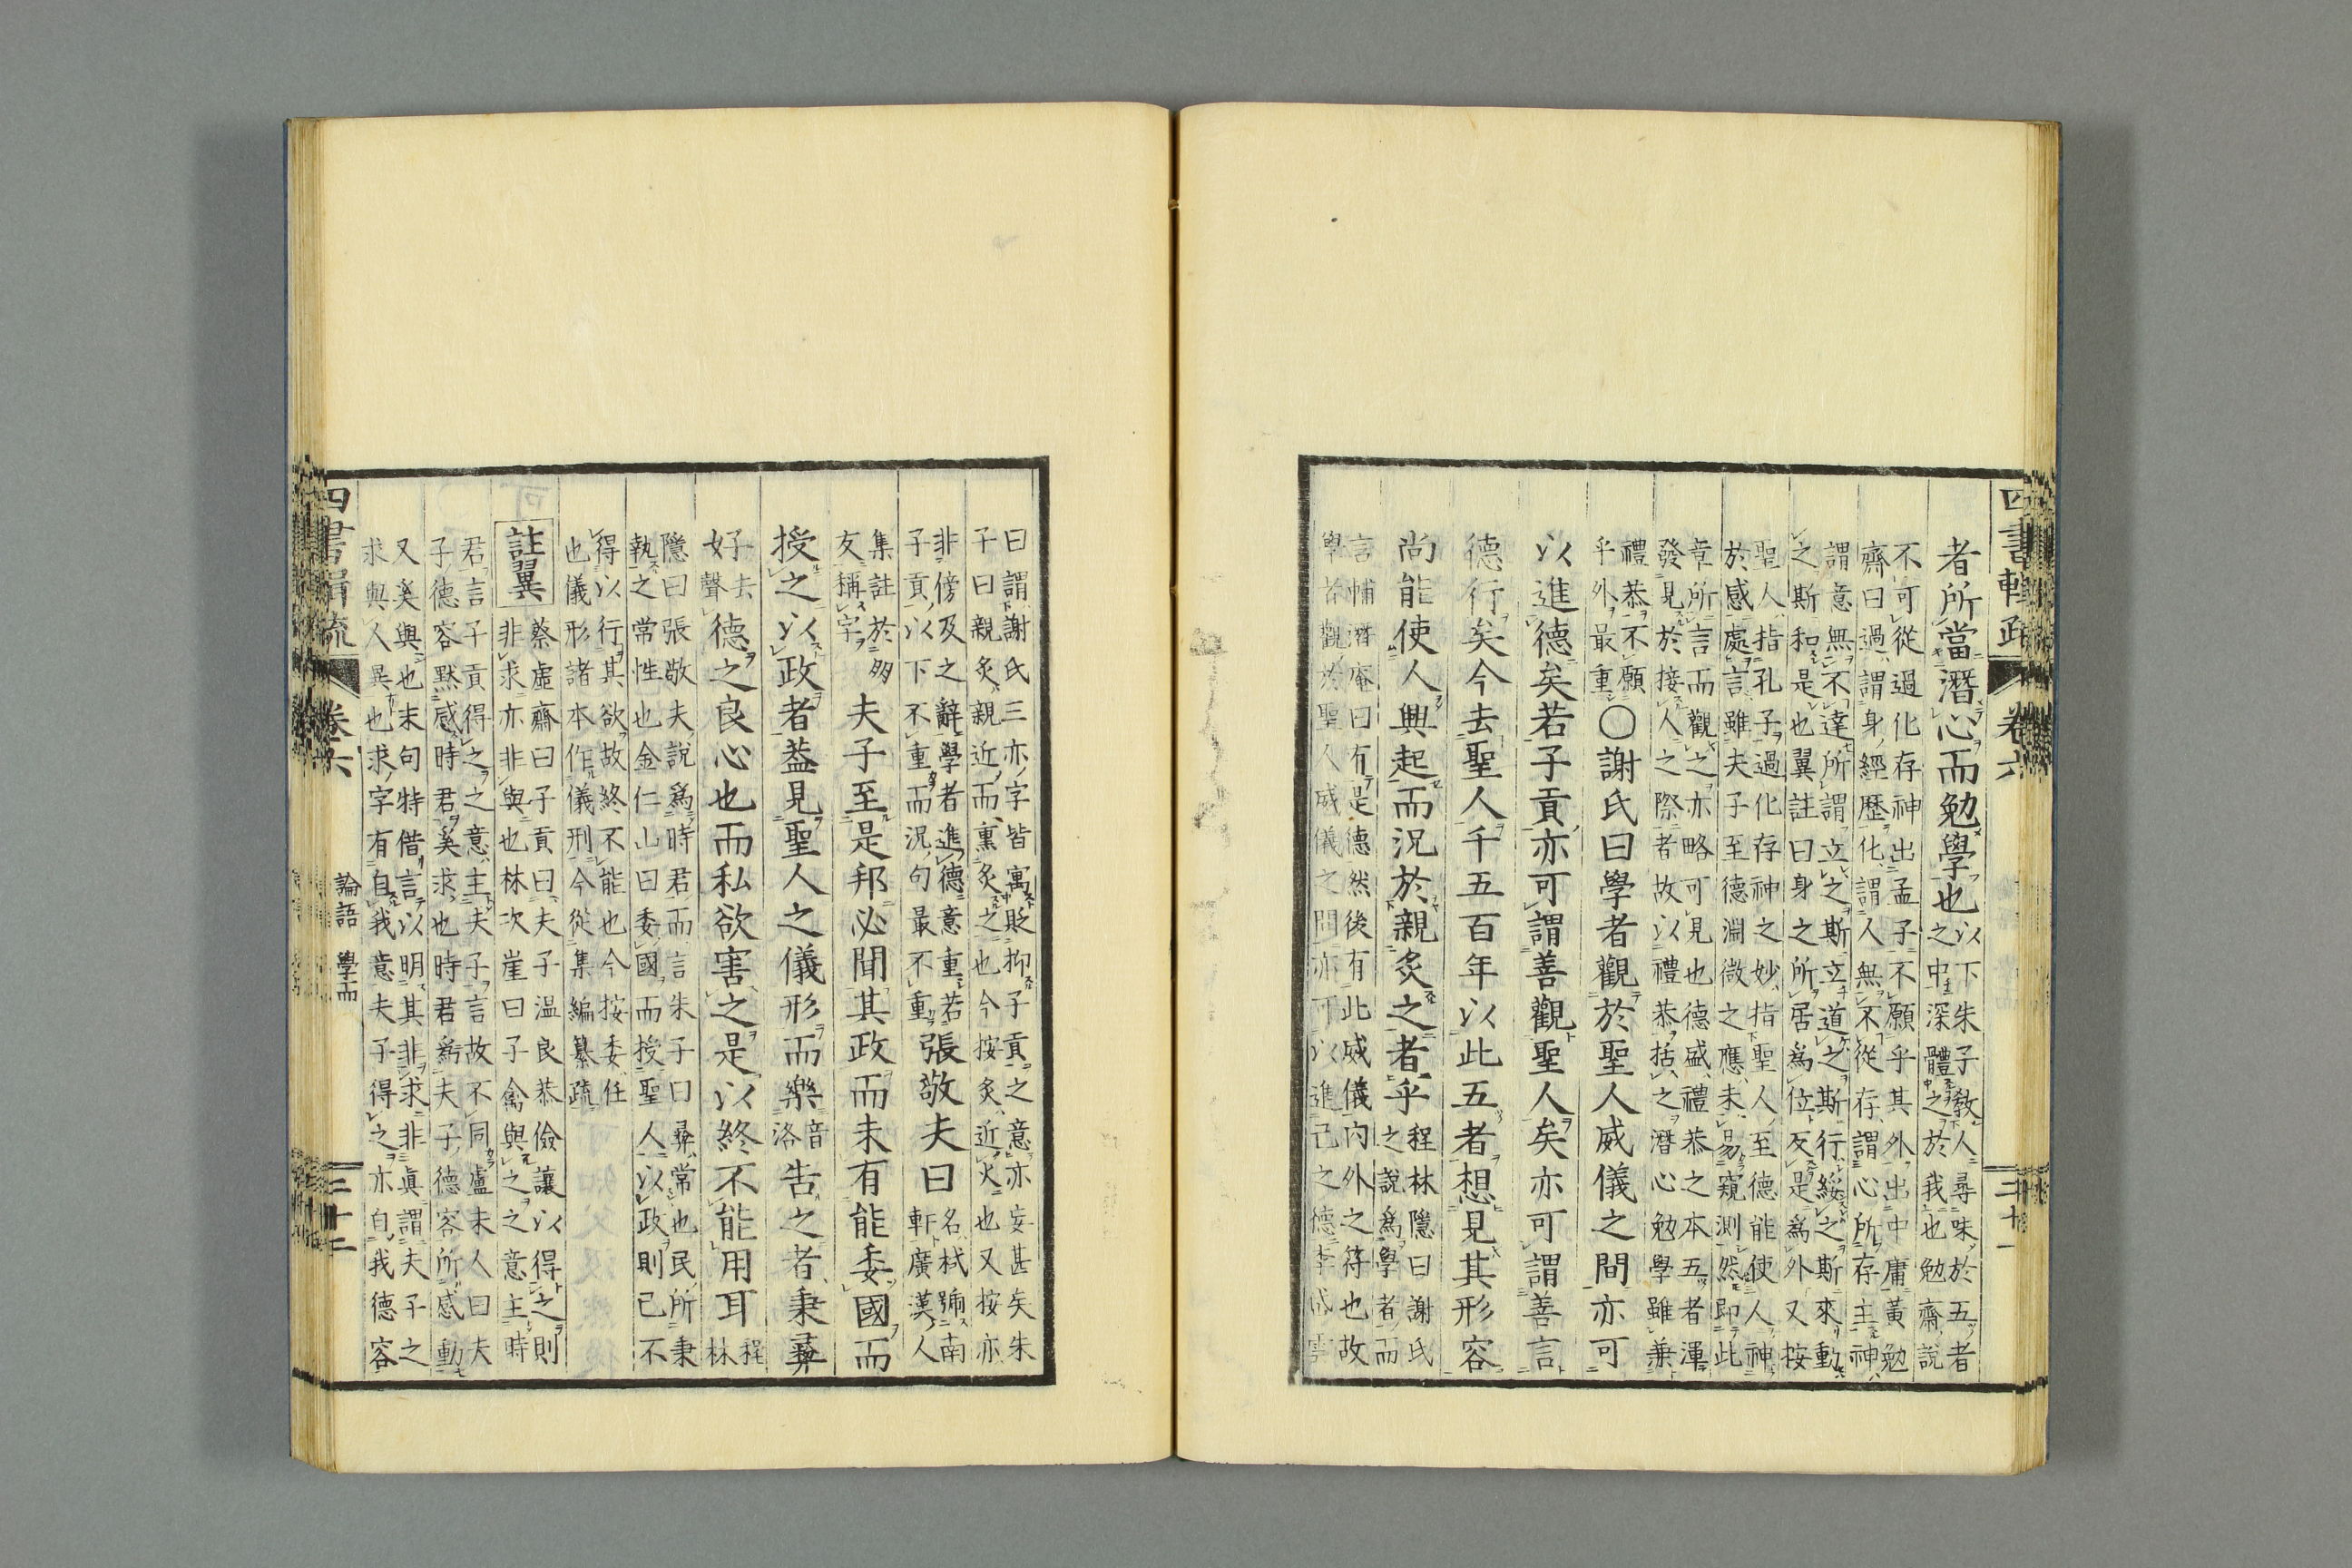 四書輯疏
卷六
二十一
者所當潛心而勉學也
以下朱子教人尋味於五者
之中深體之於我也勉齋說
不可從過化存神出孟子不願乎其外出中庸黃勉
齋曰過謂身經歷化謂人無不從存謂心所存主神
謂意無不達所謂立之斯立道之斯行綏之斯來動
之斯和是也翼註曰身之所居爲位反是爲外又按
聖人指孔子過化存神之妙指聖人至德能使人神
於感處言雖夫子至德淵微之應未易窺測然即此
章所言而觀之亦略可見也德盛禮恭之本五者渾
發見於接人之際者故以禮恭括之潛心勉學雖兼
禮恭不願
乎外最重
〇謝氏曰學者觀於聖人威儀之間亦可
以進德矣若子貢亦可謂善觀聖人矣亦可謂善言
德行矣今去聖人千五百年以此五者想見其形容
尚能使人興起而況於親炙之者乎
程林隱曰謝氏
之說爲學者而
言輔潛庵曰有是德然後有此威儀內外之符也故
學者觀於聖人威儀之間亦可以進己之德李岱雲
曰謂謝氏三亦字皆寓貶抑子貢之意亦妄甚矣朱
子曰親炙親近而熏炙之也今按炙近火也又按亦
非傍及之辭學者進德意重若
子貢以下不重而況句最不重
張敬夫曰
名栻號南
軒廣漢人
集註於多
友稱字
夫子至是邦必聞其政而未有能委國而
授之以政者蓋見聖人之儀形而樂
音
洛
告之者秉彝
好
去
聲
德之良心也而私欲害之是以終不能用耳
程
林
隱曰張敬夫說爲時君而言朱子曰彝常也民所秉
執之常性也金仁山曰委國而授聖人以政則己不
得以行其欲故終不能也今按委任
也儀形諸本作儀刑今從集編纂疏
註翼
蔡虛齋曰子貢曰夫子溫良恭儉讓以得之則
非求亦非與也林次崖曰子禽與之之意主時
君言子貢得之之意主夫子言故不同盧未人曰夫
子德容默感時君奚求也時君爲夫子德容所感動
又奚與也末句特借言以明其非求非眞謂夫子之
求與人異也求字有自我意夫子得之亦自我德容
四書輯疏
卷六
論語 學而
二十二